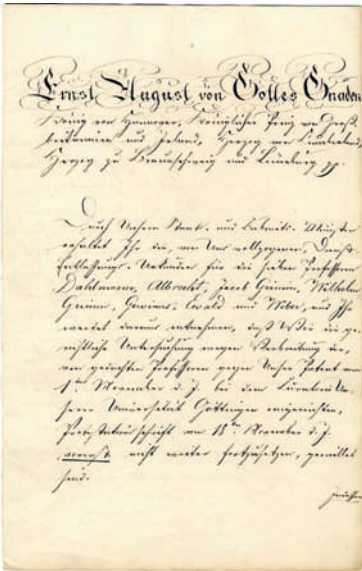 Ernst August von Gottes Gnaden
König von Hannover, Königlicher Prinz von Groß-
britannien und Irland, Herzog von Cumberland,
Herzog zu Braunschweig und Lüneburg pp.
Durch Unsern Staats- und Cabinets-Minister
erhaltet Ihr die, von Uns vollzogenen, Dienst-
Entlassungs-Urkunden für die sieben Professoren
Dahlmann, Albrecht, Jacob Grimm, Wilhelm
Grimm, Gervinus, Ewald und Weber, und Ihr
werdet daraus entnehmen, daß Wir die ge-
richtliche Untersuchung wegen Verbreitung der,
von gedachten Professoren gegen Unser Patent vom
1sten November d. J. bei dem Curatorio Un-
serer Universität Göttingen eingereichten,
Protestationsschrift vom 18ten November d. J.
vorerst nicht weiter fortzusetzen, gewillet
sind.